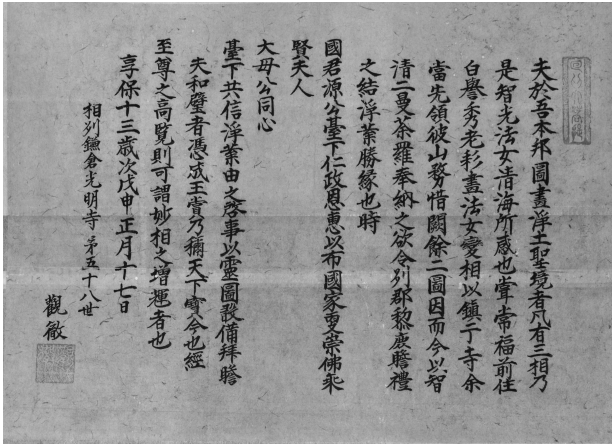 夫於吾本邦圖畫浄土聖境者凡有三相乃
是智光法女清海所感也當常福前住
白譽秀老彩畫法女變相以鎮于寺余
當先領彼山務惜闕餘二圖因而今以智
清二曼荼羅奉納之欲令列郡黎庶瞻禮
之結浮業勝縁也時
國君源公臺下仁政恩惠以布國家更崇佛乘
賢夫人
大毋公同心
臺下共信浮業由之啓事以靈圖設備拜瞻
夫和璧者憑成王賞乃稱天下寳今也經
至尊之高覧則可謂妙相之增輝者也
享保十三歳次戊申正月十七日
相列鎌倉光明寺第五十八世
觀敏